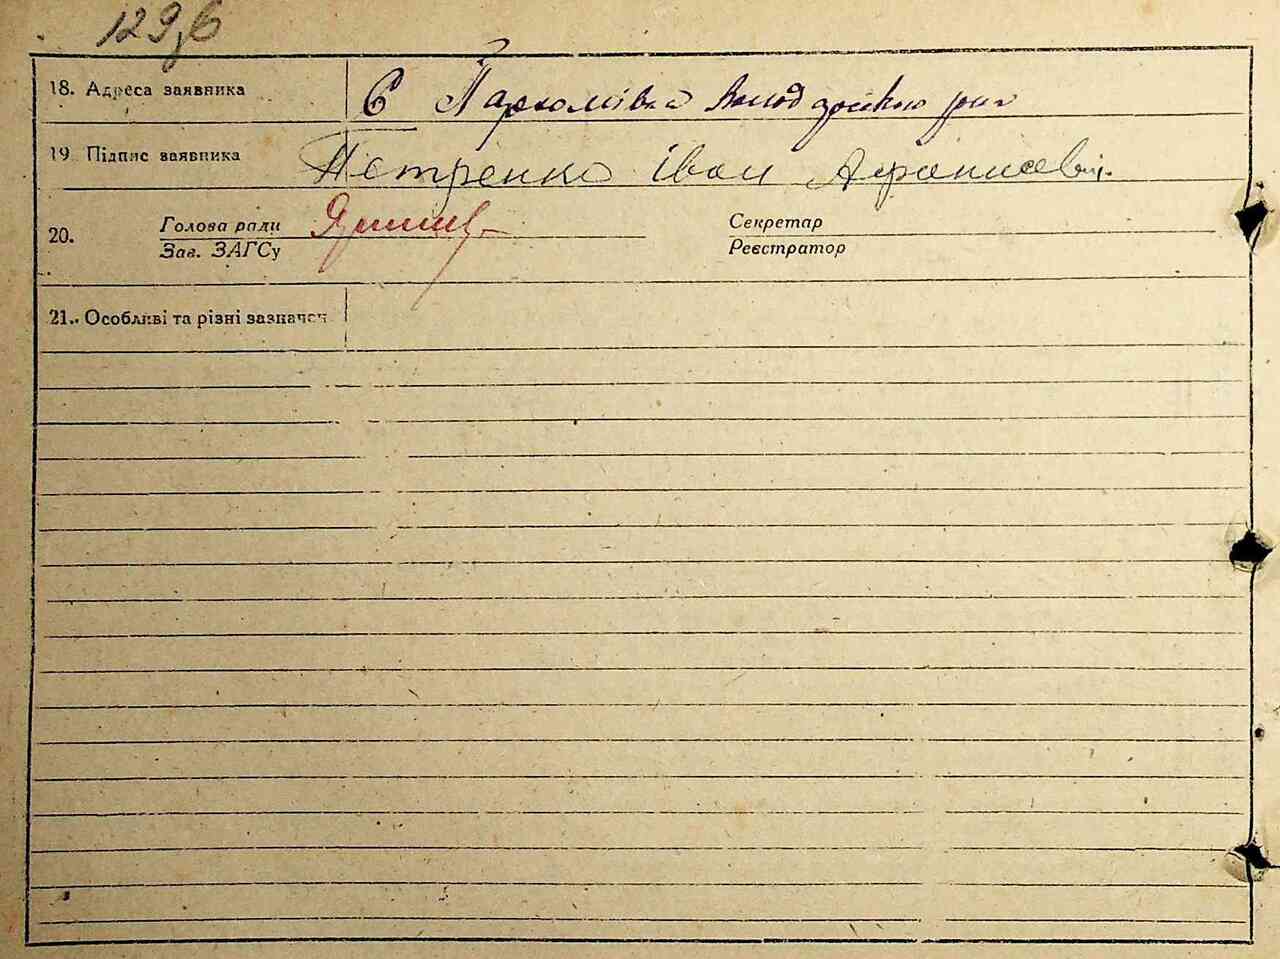 129
18. Адреса заявника С Пархомівка Володарського рай
19. Підпис заявника Петренко Іван Афанасович.
20. Голова ради Секретар
Зав. ЗАГСу Реєстратор
21. Особливі та різні зазначен